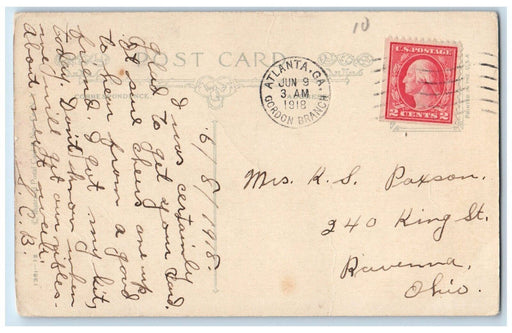 10
POST CARD
CORRESPONDENCE
ATLANTA, GA.
JUN 9
3 AM
1918
GORDON BRANCH
U.S. POSTAGE
2 CENTS 2
6/8/1918.
I was certainly
glad to get your card.
It sure cheers one up
to hear from a good
friend. I got my kit,
today. Don't know when
we will get our rifles.
About next week.
C. B.
Mrs. R. S. Paxson.
240 King St.
Ravenna,
Ohio.